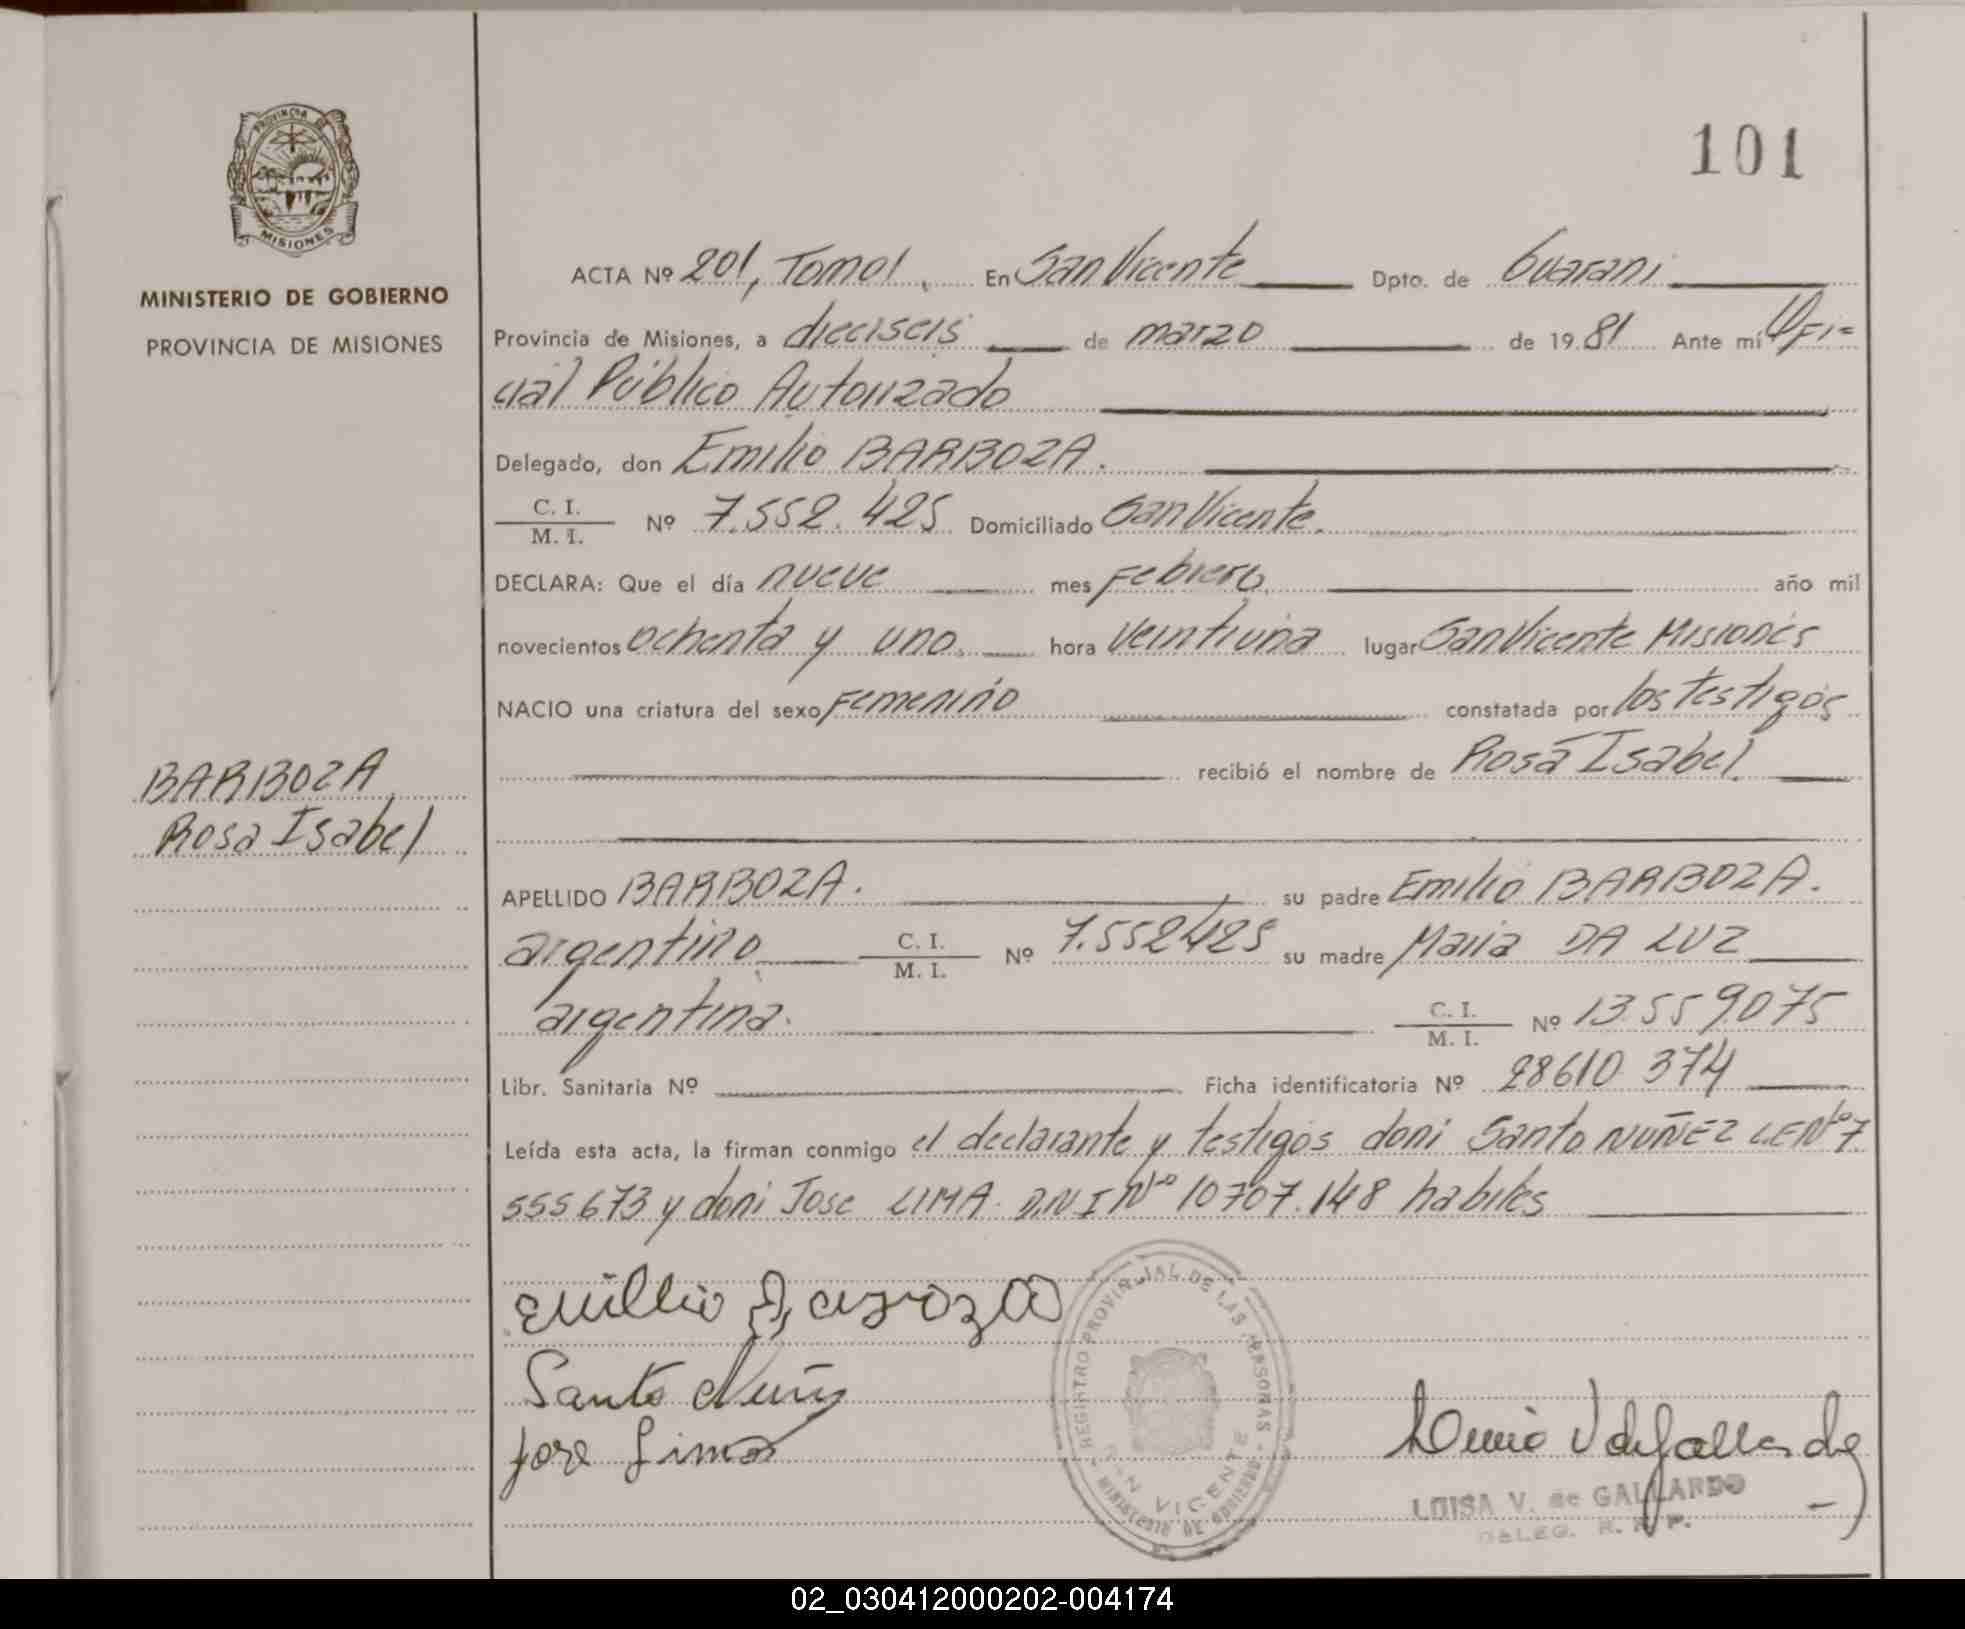 PROVINCIA DE
MISIONES
MINISTERIO DE GOBIERNO
PROVINCIA DE MISIONES
BARBOZA
Rosa Isabel
101
ACTA Nº 201, Tomo I, En San Vicente Dpto. de Guarani
Provincia de Misiones, a dieciseis de marzo de 1981 Ante mí Ofi=
cial Público Autorizado
Delegado, don Emilio BARBOZA.
C. I.
M. I. Nº 7.552.425 Domiciliado San Vicente.
DECLARA: Que el día nueve mes Febrero, año mil
novecientos ochenta y uno. hora veintiuna lugar San Vicente Misiones
NACIO una criatura del sexo Femenino constatada por los testigos
recibió el nombre de Rosa Isabel.
APELLIDO BARBOZA. su padre Emilio BARBOZA.
argentino C. I.
M. I. Nº 7.552425 su madre Maria DA LUZ
argentina. C. I.
M. I. Nº 13.559075
Libr. Sanitaria Nº Ficha identificatoria Nº 28610 374
Leída esta acta, la firman conmigo el declarante y testigos doni Santo NUÑEZ LE Nº 7.
555673 y doni Jose LIMA. D.N.I Nº 10707.148 habiles
Emilio Barboza
Santo Nuñez
Jose Lima
REGISTRO PROVINCIAL DE LAS PERSONAS
SAN VICENTE
MINISTERIO DE GOBIERNO
LUISA V. de GALLARDO
DELEG. R. P. P.
02_030412000202-004174